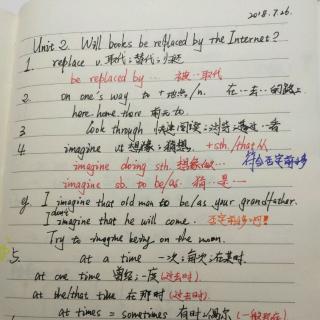 2018.7.26.
Unit 2. Will books be replaced by the Internet?
1. replace v. 取代;替代;归还
be replaced by … 被…取代
2. on one's way to +地点/n. 在…去…的路上
here home there 前无to
3. look through 快速阅读;浏览
4. imagine vt 想像;猜想. +sth/that从
imagine doing sth. 想像做… 符合否定前移
imagine sb. to be/as 猜…是…
eg. I imagine that old man to be/as your grandfather.
don't
imagine that he will come. 否定前移
Try to imagine being on the moon.
5. at a time 一次;每次;在某时.
at one time 曾经;一度(过去时)
at the/that time 在那时(过去时)
at times = sometimes 有时;偶尔(一般现在